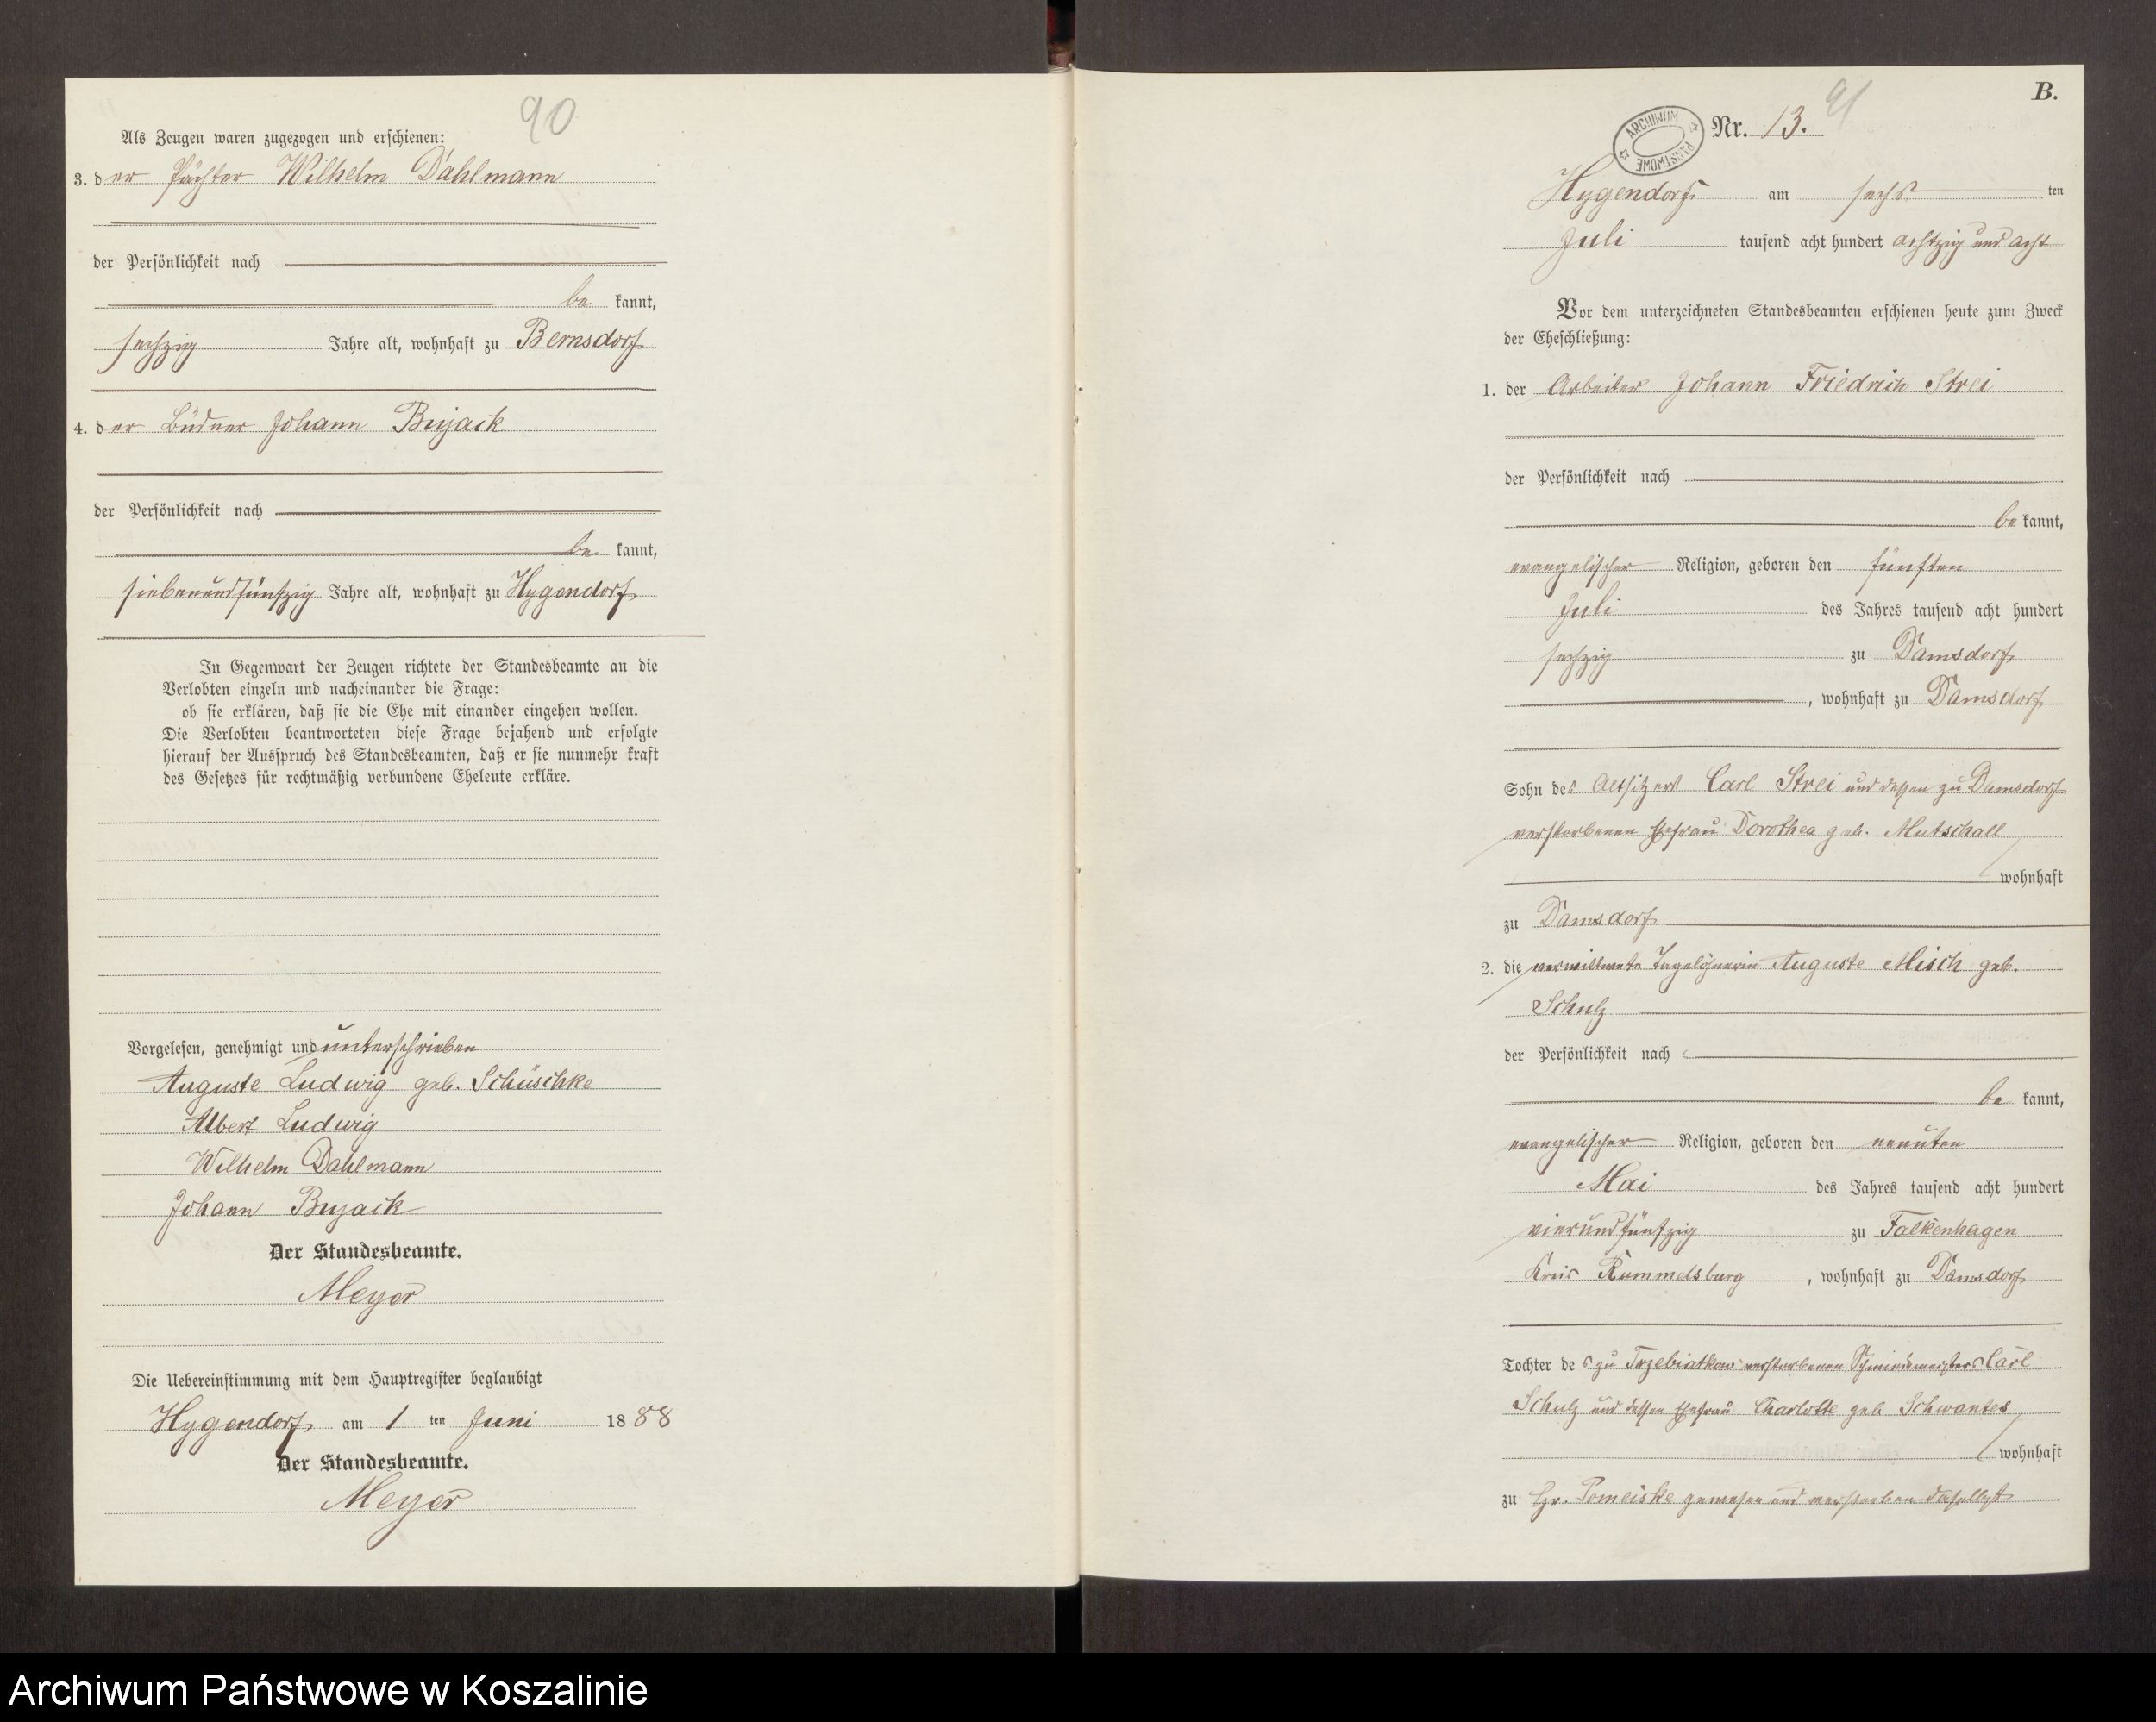 90
Als Zeugen waren zugezogen und erschienen:
3. der Pächter Wilhelm Dahlmann
der Persönlichkeit nach
be kannt,
sechzig Jahre alt, wohnhaft zu Bernsdorf
4. der Büdner Johann Bujack
der Persönlichkeit nach
be kannt,
siebenundfünfzig Jahre alt, wohnhaft zu Hygendorf
In Gegenwart der Zeugen richtete der Standesbeamte an die
Verlobten einzeln und nacheinander die Frage:
ob sie erklären, daß sie die Ehe mit einander eingehen wollen.
Die Verlobten beantworteten diese Frage bejahend und erfolgte
hierauf der Ausspruch des Standesbeamten, daß er sie nunmehr kraft
des Gesetzes für rechtmäßig verbundene Eheleute erkläre.
Vorgelesen, genehmigt und unterschrieben
Auguste Ludwig geb. Schüschke
Albert Ludwig
Wilhelm Dahlmann
Johann Bujack
Der Standesbeamte.
Meyer
Die Uebereinstimmung mit dem Hauptregister beglaubigt
Hygendorf am 1 ten Juni 1888
Der Standesbeamte.
Meyer
B.
91
ARCHIWUM PAŃSTWOWE
Nr. 13.
Hygendorf am sechs ten
Juli tausend acht hundert achtzig und acht
Vor dem unterzeichneten Standesbeamten erschienen heute zum Zweck
der Eheschließung:
1. der Arbeiter Johann Friedrich Strei
der Persönlichkeit nach
be kannt,
evangelischer Religion, geboren den fünften
Juli des Jahres tausend acht hundert
sechzig zu Damsdorf
, wohnhaft zu Damsdorf
Sohn des Altsitzers Carl Strei und dessen zu Damsdorf
verstorbenen Ehefrau Dorothea geb. Mutschall
wohnhaft
zu Damsdorf
2. die verwittwete Tagelöhnerin Auguste Misch geb.
Schulz
der Persönlichkeit nach
be kannt,
evangelischer Religion, geboren den neunten
Mai des Jahres tausend acht hundert
vierundfünfzig zu Falkenhagen
Kreis Rummelsburg , wohnhaft zu Damsdorf
Tochter des zu Trzebiatkow verstorbenen Schmiedemeisters Carl
Schulz und dessen Ehefrau Charlotte geb Schwantes
wohnhaft
zu Gr. Pomeiske gewesen und verstorben daselbst
Archiwum Państwowe w Koszalinie